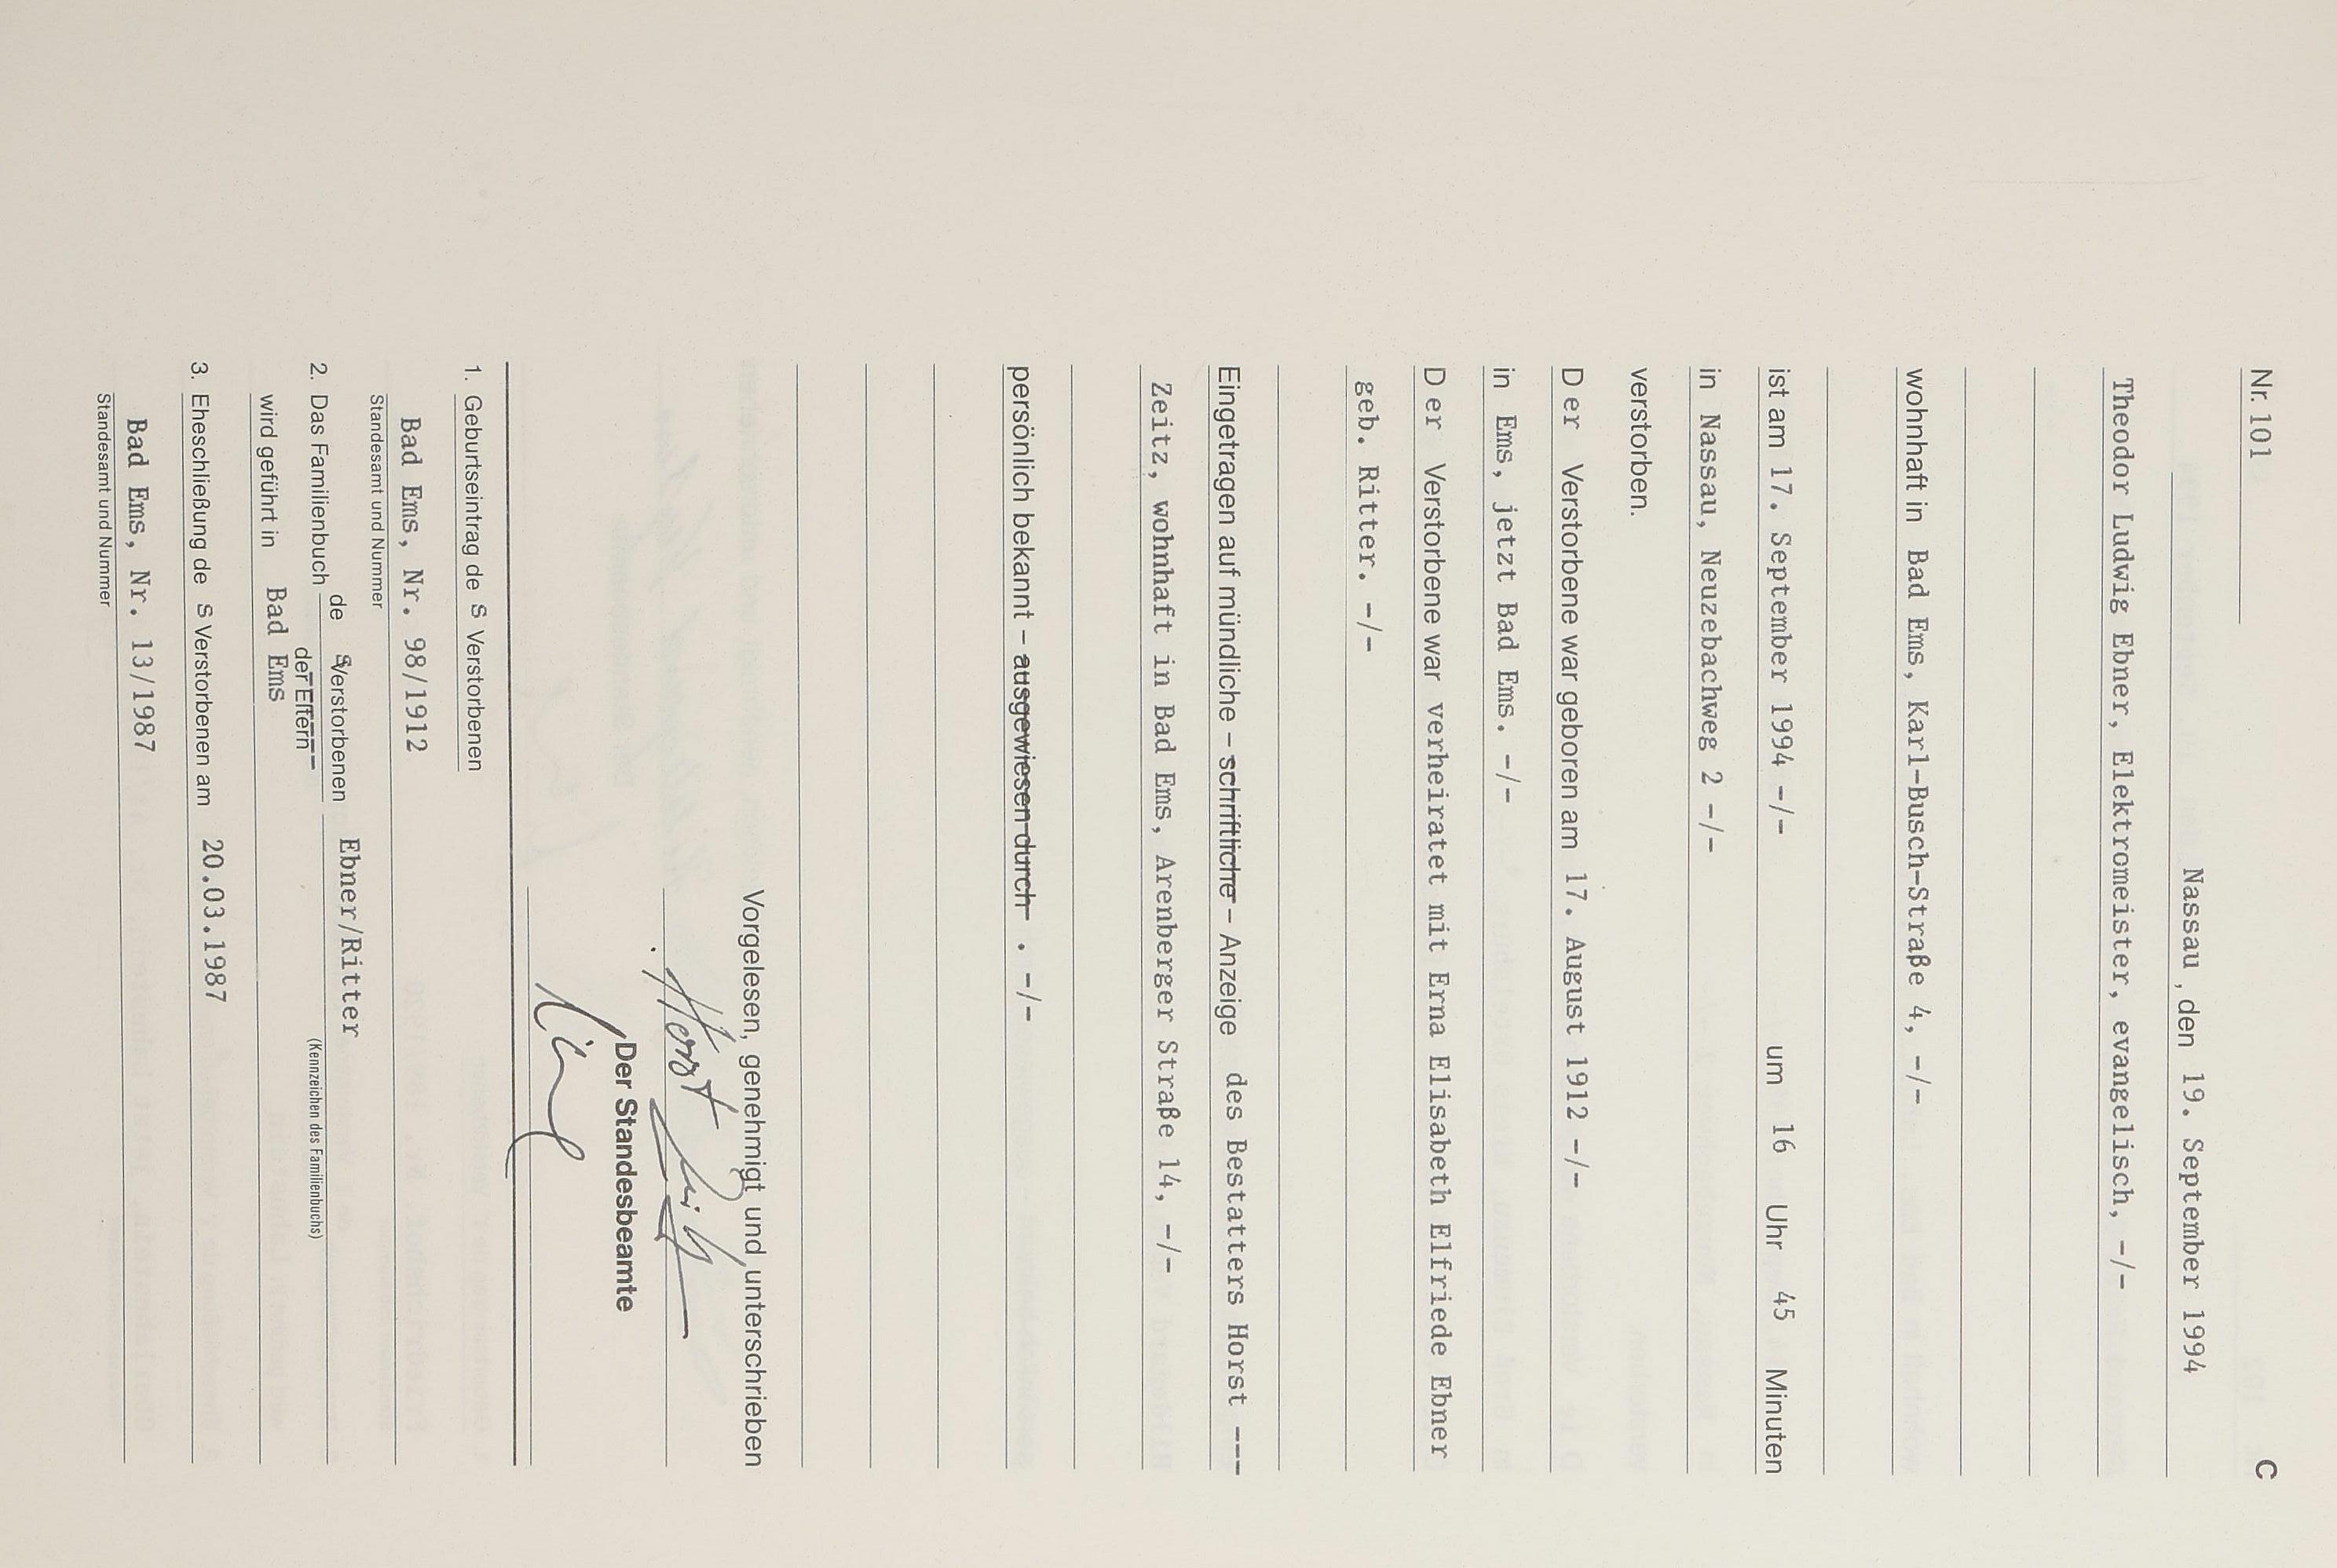 C
Nr. 101
Nassau, den 19. September 1994
Theodor Ludwig Ebner, Elektromeister, evangelisch, -/-
wohnhaft in Bad Ems, Karl-Busch-Straße 4, -/-
ist am 17. September 1994 -/- um 16 Uhr 45 Minuten
in Nassau, Neuzebachweg 2 -/-
verstorben.
D er Verstorbene war geboren am 17. August 1912 -/-
in Ems, jetzt Bad Ems. -/-
D er Verstorbene war verheiratet mit Erna Elisabeth Elfriede Ebner
geb. Ritter. -/-
Eingetragen auf mündliche – schriftliche – Anzeige des Bestatters Horst ---
Zeitz, wohnhaft in Bad Ems, Arenberger Straße 14, -/-
persönlich bekannt – ausgewiesen durch . -/-
Vorgelesen, genehmigt und unterschrieben
Horst
Der Standesbeamte
1. Geburtseintrag de s Verstorbenen
Bad Ems, Nr. 98/1912
Standesamt und Nummer
2. Das Familienbuch de s Verstorbenen Ebner/Ritter
der Eltern (Kennzeichen des Familienbuchs)
wird geführt in Bad Ems
3. Eheschließung de s Verstorbenen am 20.03.1987
Bad Ems, Nr. 13/1987
Standesamt und Nummer